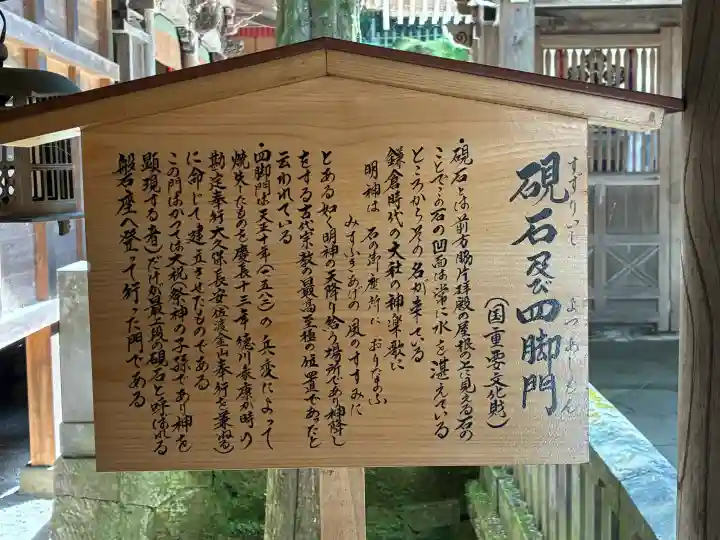 硯石及び四脚門
すずりいし よつあしもん
(国重要文化財)
・硯石とは前方脇片拝殿の屋根の上に見える石の
ことでこの石の凹面は常に水を湛えている
ところからその名が来ている
鎌倉時代の大社の神楽歌に
明神は 石の御座所に おりたまふ
みすふきあげの 風のすすみに
とある如く明神の天降り給う場所であり神降し
をする古代宗教の最高至極の位置であったと
云われている
・四脚門は天正十年(一五八二)の兵変によって
焼失したものを慶長十三年徳川家康が時の
勘定奉行大久保長安(佐渡金山奉行を兼ねる)
に命じて建立させたものである
この門はかつては大祝(祭神の子孫であり神を
顕現する者)だけが最上段の硯石と呼ばれる
磐石座へ登って行った門である